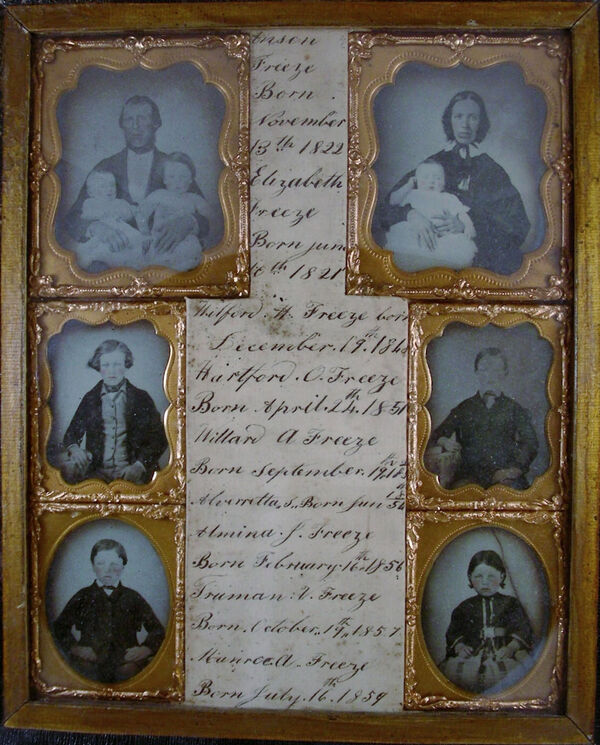 Anson
Freeze
Born
November
13th 1822
Elizabeth
Freeze
Born June
10th 1821
Wilford. H. Freeze born
December. 19. 184
Hartford. O. Freeze
Born. April. 24th. 1851
Willard A Freeze
Born September.
Alverretta, S. Born Jun 54
Almina. J. Freeze
Born February. 16th 1856
Truman. V. Freeze
Born. October. 19th. 1857
Munroe A. Freeze
Born July. 16th. 1859